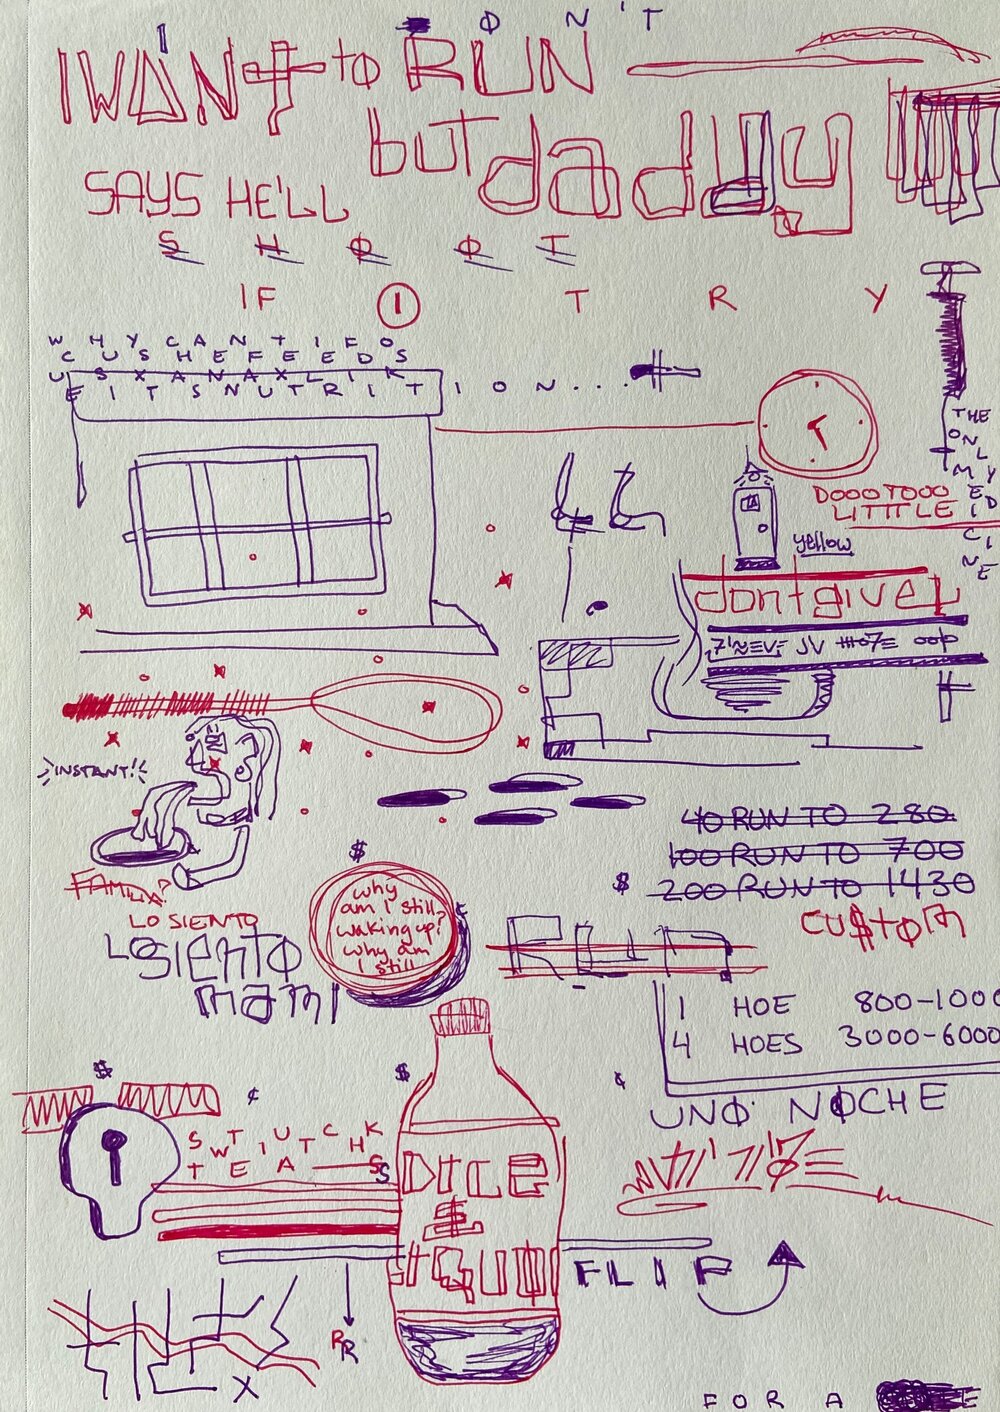 I DON'T
I WANT to RUN
but daddy
SAYS HE'LL
SHOOT
IF I TRY
WHYCANTIFO
CUSHEFEEDS
USXANAXLIK
EITSNUTRITION...
THE
ONL
Y
MEDICINE
DOOOTOOO
LITTTLE
yellow
dont give
INSTANT!!
FAMILIA?
LO SIENTO
LO SIENTO
mami
why
am I still?
waking up?
why am
I still
$
40 RUN TO 280
100 RUN TO 700
$ 200 RUN TO 1430
CU$TOM
RUN
1 HOE 800-1000
4 HOES 3000-6000
UNO NOCHE
$ ¢ $ ¢
FLIP
RR
X
FOR A